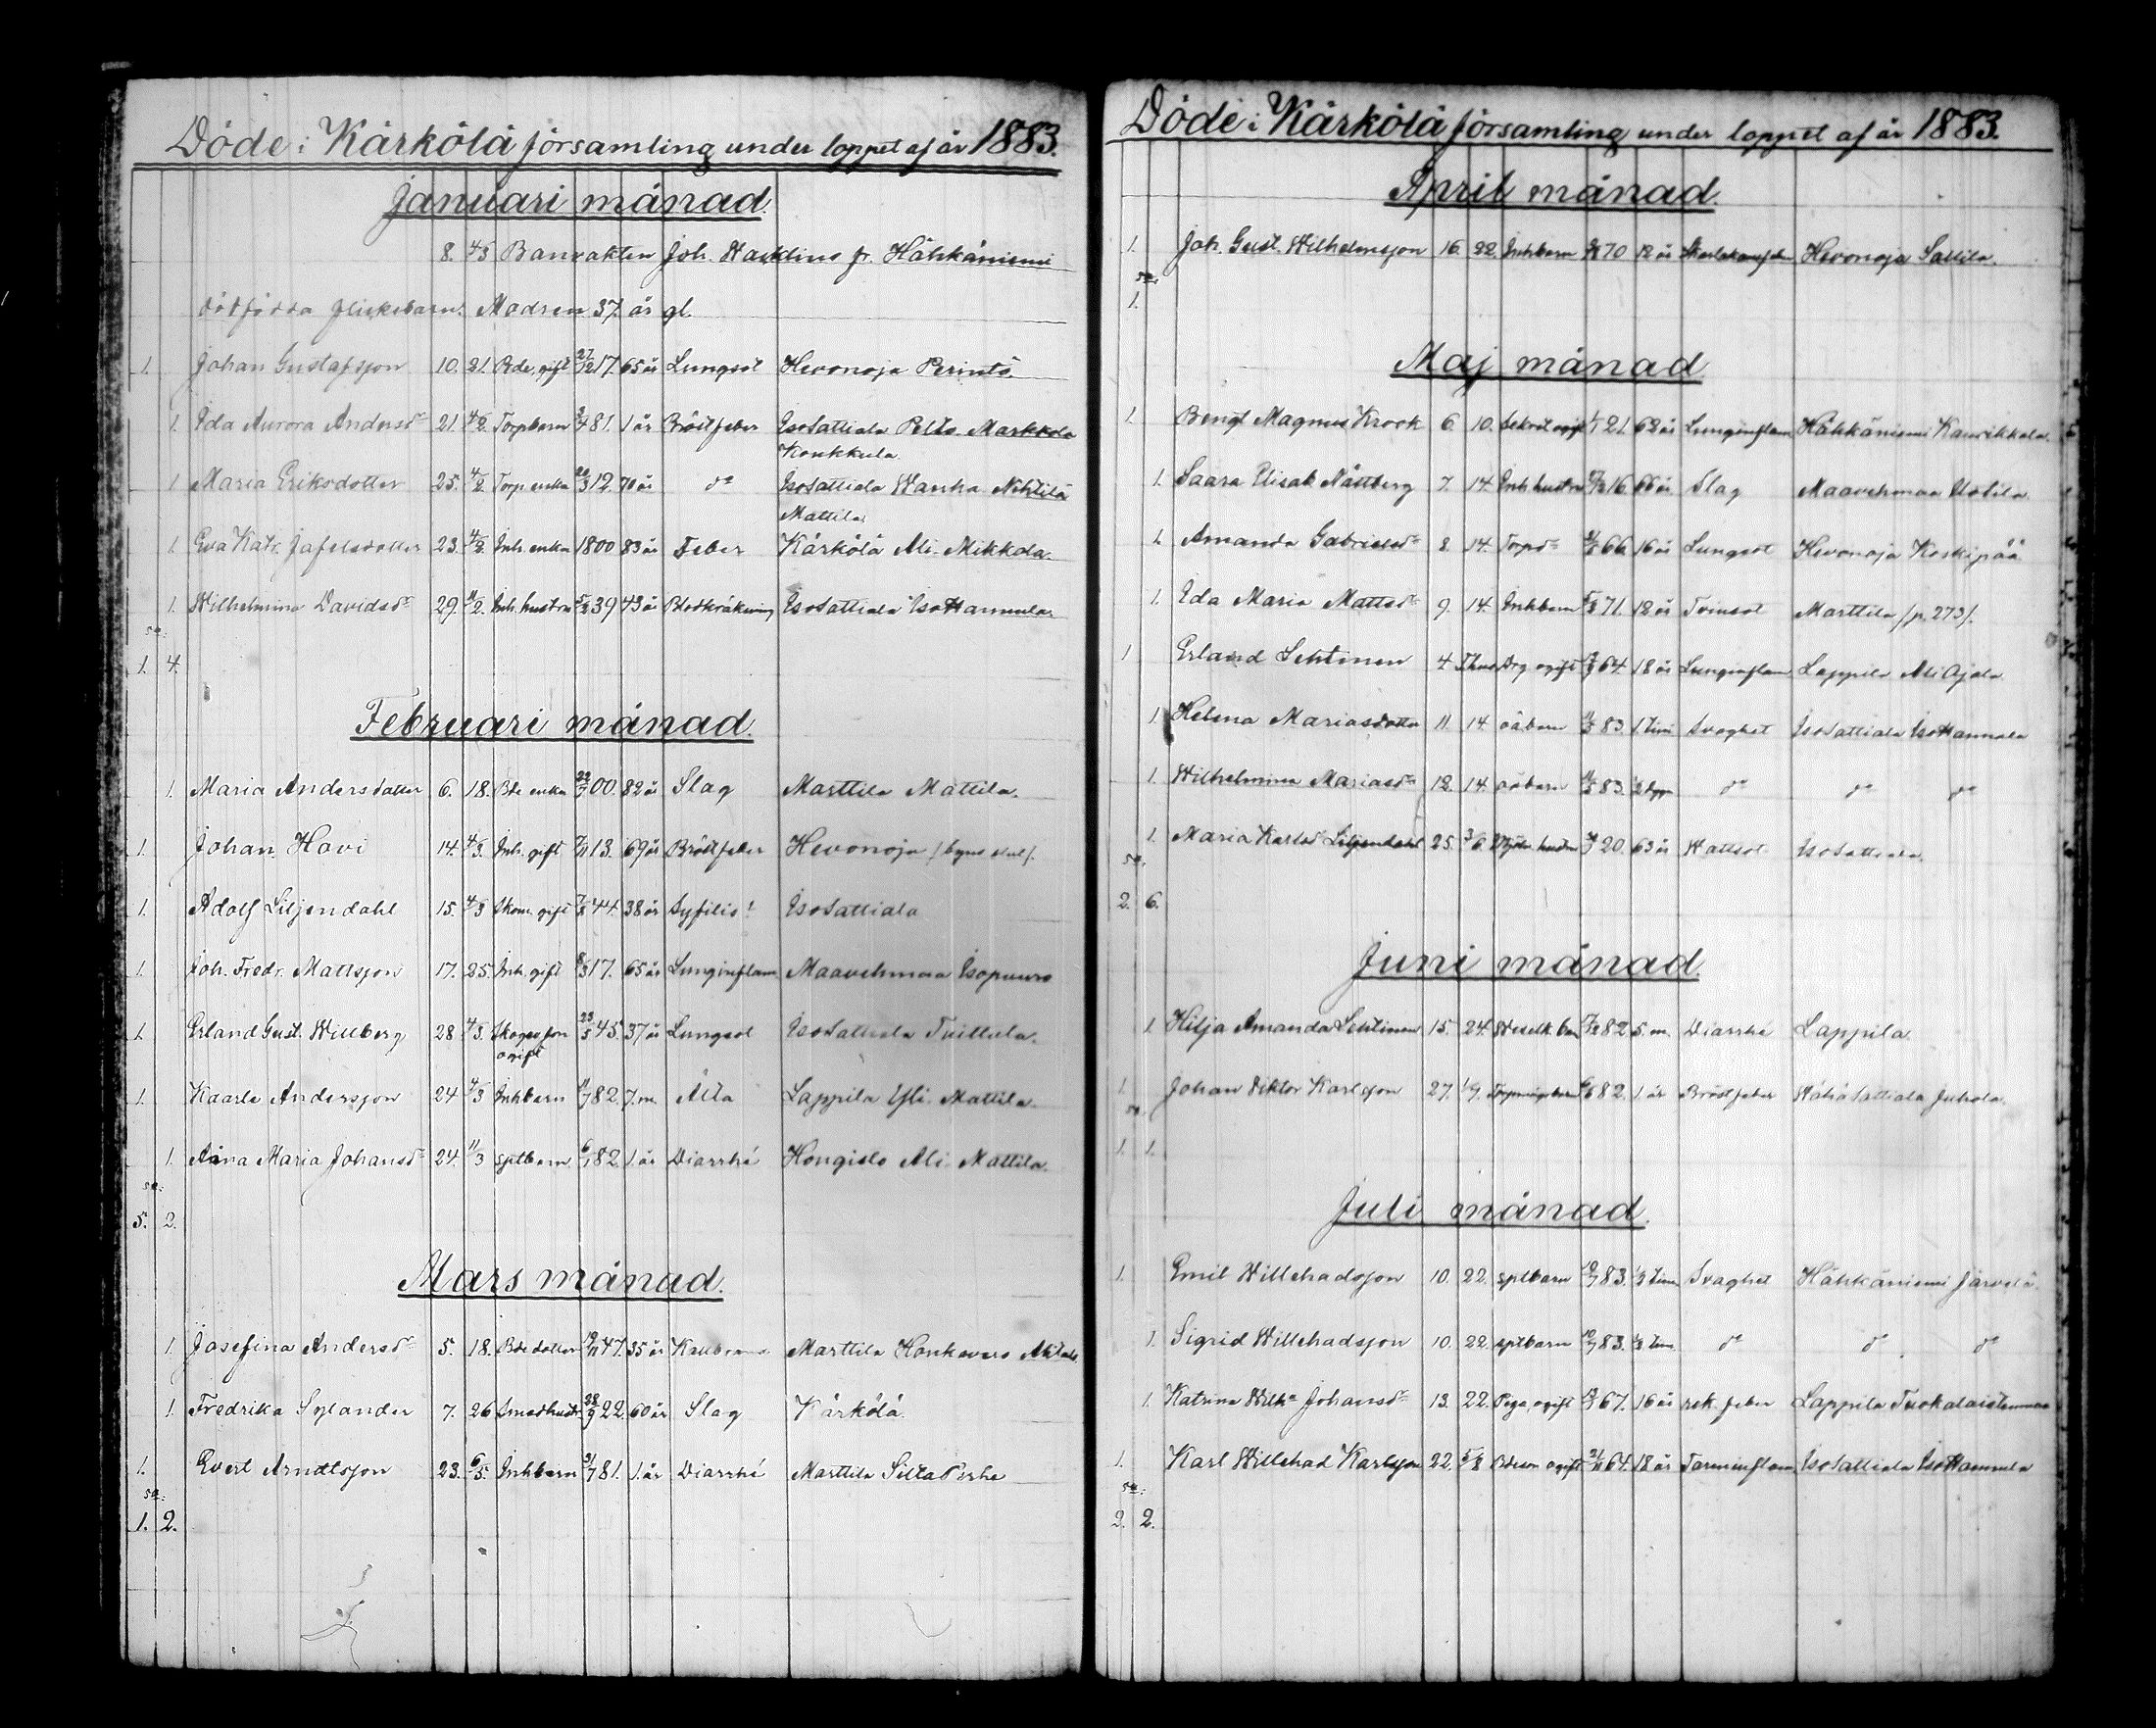 Döde i Kärkölä församling under loppet af år 1883.
Januari månad.
8. 4/3 Banvakten Joh. fr. Hähkäniemi
dödfödda flickebarn. Modren 37. år gl.
1. Johan Gustafsson 10. 21. Bde, gift 27/12 17. 65 år Lungsot Hevonoja Perintö
1. Ida Aurora Andersdr 21. 4/2. Torpbarn 81. 1 år Bröstfeber IsoSattiala Pelto Markkola
Konkkula
1. Maria Eriksdotter 25. 4/2. Torp. enka 12. 70 år do IsoSattiala Wanha Nihtilä
Mattila
1. Eva Katr. 23. 4/2. Inh. enka 1800 83 år Feber Kärkölä Ali-Mikkola
1. Wilhelmina Davidsdr 29. 11/2. Inh. hustru 39 43 år Blodkräkning IsoSattiala IsoHannula
Sa:
1. 4.
Februari månad.
1. Maria Andersdotter 6. 18. Bde enka 00. 82 år Slag Marttila Mattila.
1. Johan Hovi 14. 4/3. Inh. gift 13. 69 år Bröstfeber Hevonoja
1. Adolf Liljendahl 15. 4/3 Skom. gift 44. 38 år Syfilis! IsoSattiala
1. Joh. Fredr. Mattsson 17. 25. Inh. gift 8/3 17. 65 år Lunginflam. Maavehmaa Isopuuro
1. Erland Gust. Willberg 28. 4/3. 23/5 45. 37 år Lungsot IsoSattiala Tuittula.
ogift
1. Kaarle Andersson 24 4/3 Inhbarn 82. 7. m. Lappila Yli Mattila.
1. Aina Maria Johansdr 24. 11/3 sptbarn 82. 1. år Diarrhé Hongisto Ali Mattila.
Sa:
5. 2.
Mars månad.
1. Josefina Andersdr 5. 18. Bde dotter 47. 35 år Kallbrand Marttila
1. Fredrika Sylander 7. 26 Smedhustr. 28/9 22. 60 år Slag Kärkölä.
1. Evert Arndtsson 23. 6/5. Inhbarn 81. 1. år Diarrhé Marttila
Sa:
1. 2.
Döde i Kärkölä församling under loppet af år 1883.
April månad.
1. Joh. Gust. Wilhelmsson 16. 22. Inhbarn 70 12 år Hevonoja Sattila.
Sa:
1.
Maj månad
1. Bengt Magnus Krook 6. 10. 21. 62 år Lunginflam. Hähkäniemi
1. Saara Elisab. Nättberg 7. 14. Inh. hustru 16. 66 år Slag Maavehmaa Uotila.
1. Amanda Gabrielsdr 8. 14. Torpdr 66 16 år Lungsot Hevonoja Koskipää
1. Ida Maria Mattsdr 9. 14. Inhbarn 71. 12 år Tvinsot Marttila /p. 273/.
1. Erland Lehtinen 4 Drg ogift 64. 18 år Lunginflam Lappila Ali Ojala
1. Helena Mariasdotter 11. 14. oäbarn 83. 1. tim Svaghet IsoSattiala IsoHannula
1. Wilhelmina Mariasdr 12. 14. oäbarn 83. do do do
1. Maria Karlsdr Liljendahl 25. 3/6. 20. 63 år Wattsot IsoSattiala.
Sa.
2. 6.
Juni månad.
1. Hilja Amanda Lehtinen 15. 24. 82. 5. m. Diarrhé Lappila.
1. Johan Viktor Karlsson 27. 1/7. 82. 1. år Bröstfeber WähäSattiala Juhola.
Sa.
1. 1.
Juli månad.
1. Emil Willehadsson 10. 22. sptbarn 10/7 83. Svaghet Hähkäniemi Järvelä.
1. Sigrid Willehadsson 10. 22. sptbarn 10/7 83. do do do
1. Katrina Wilha Johansdr 13. 22. Piga, ogift 67. 16 år feber Lappila
1. Karl Willehad Karlsson 22. 5/8 Bdeson ogift 64. 18 år Tarminflam. IsoSattiala IsoHannula
Sa:
2. 2.